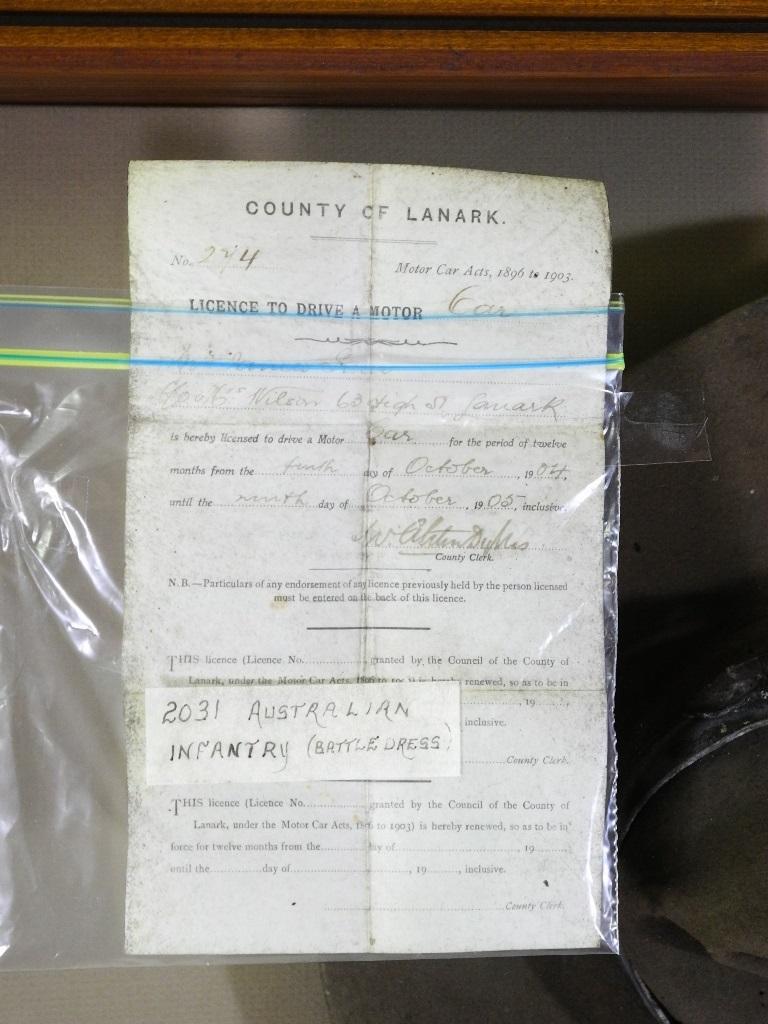 COUNTY OF LANARK.
No. 274
Motor Car Acts, 1896 to 1903.
LICENCE TO DRIVE A MOTOR Car
Wilson 63 High St Lanark
is hereby licensed to drive a Motor Car for the period of twelve
months from the tenth day of October, 1904,
until the ninth day of October, 1905, inclusive.
County Clerk.
N.B.—Particulars of any endorsement of any licence previously held by the person licensed
must be entered on the back of this licence.
THIS licence (Licence No. granted by the Council of the County of
Lanark, under the Motor Car Acts, 1896 to is hereby renewed, so as to be in
, 19
inclusive.
2031 AUSTRALIAN
INFANTRY (BATTLE DRESS)
County Clerk.
THIS licence (Licence No. granted by the Council of the County of
Lanark, under the Motor Car Acts, 1896 to 1903) is hereby renewed, so as to be in
force for twelve months from the day of , 19
until the day of , 19 , inclusive.
County Clerk.